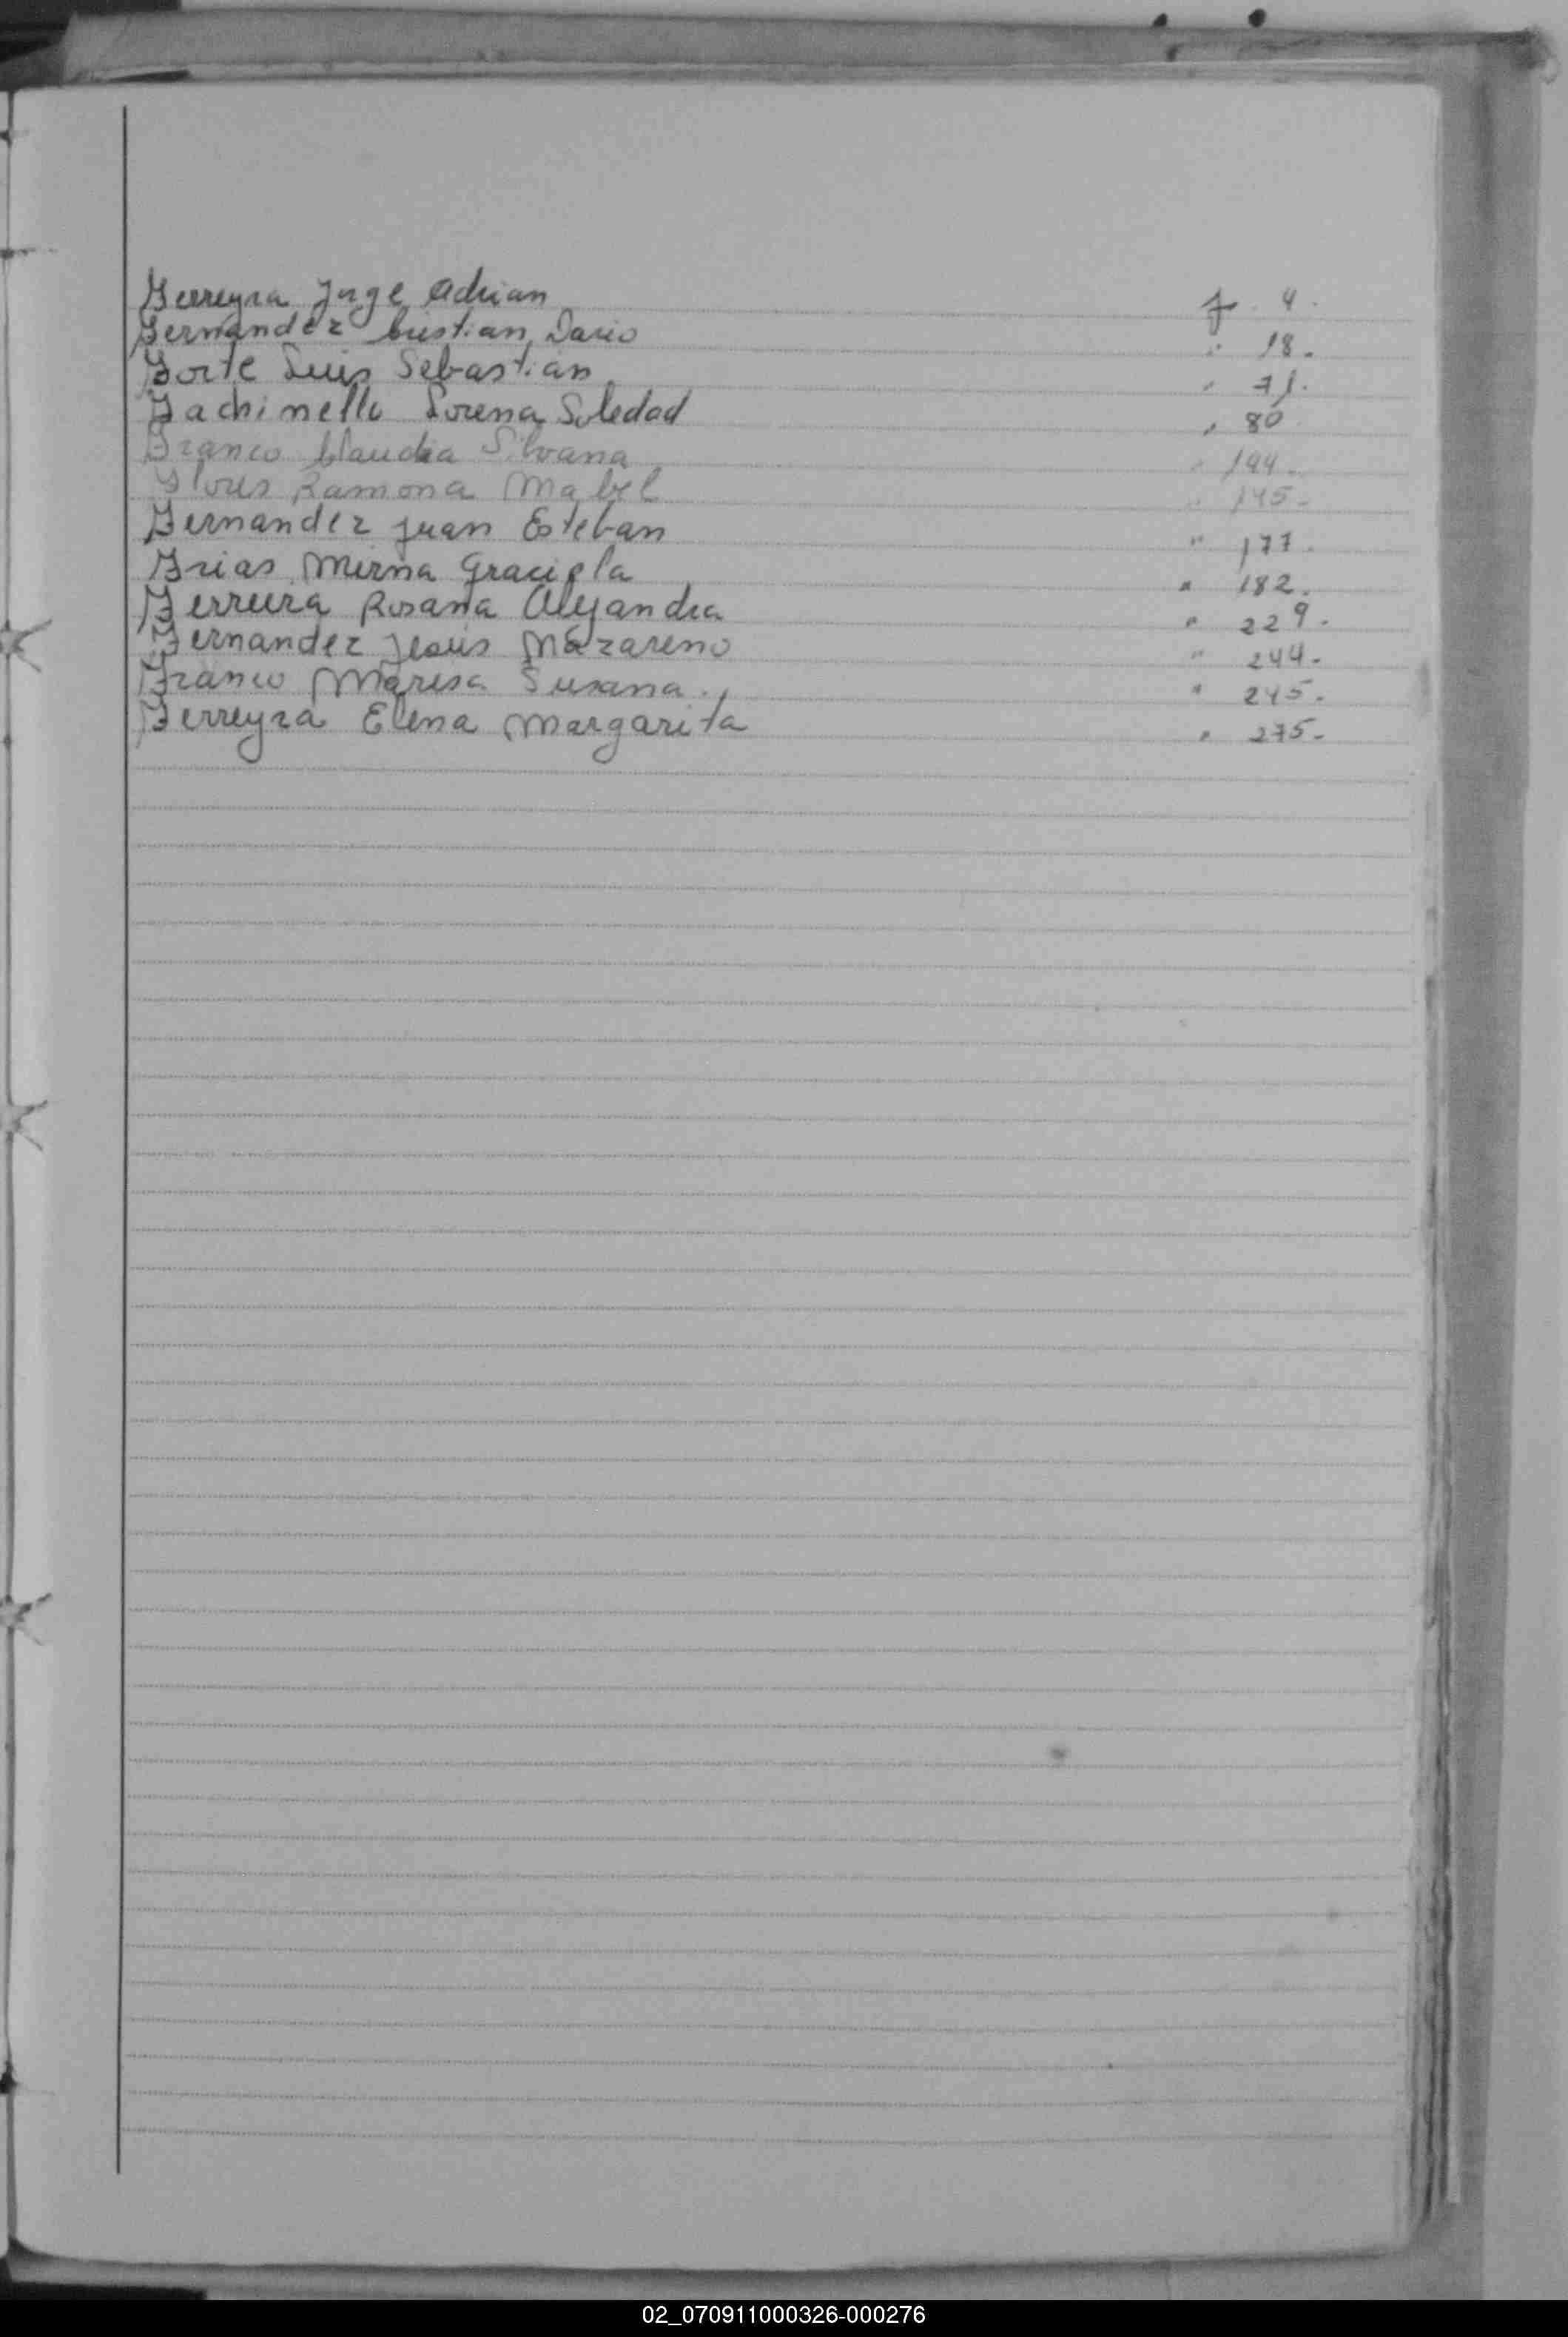 Ferreyra Jorge Adrian f. 4.
Fernandez Cristian Dario " 18.
Forte Luis Sebastian " 71.
Fachinello Lorena Soledad " 80
Franco Claudia Silvana " 144.
Flores Ramona Mabel " 145.
Fernandez Juan Esteban " 177.
Frias Mirna Graciela " 182.
Ferreira Rosana Alejandra " 229.
Fernandez Jesus Nazareno " 244.
Franco Marisa Susana. " 245.
Ferreyra Elena Margarita " 275.
02_070911000326-000276